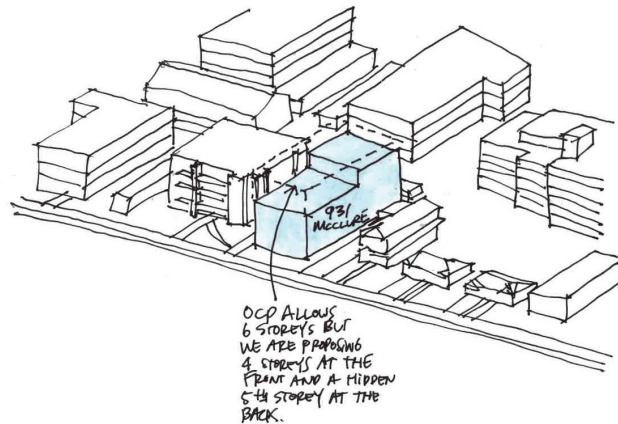 931
McCLURE
OCP ALLOWS
6 STOREYS BUT
WE ARE PROPOSING
4 STOREYS AT THE
FRONT AND A HIDDEN
5TH STOREY AT THE
BACK.